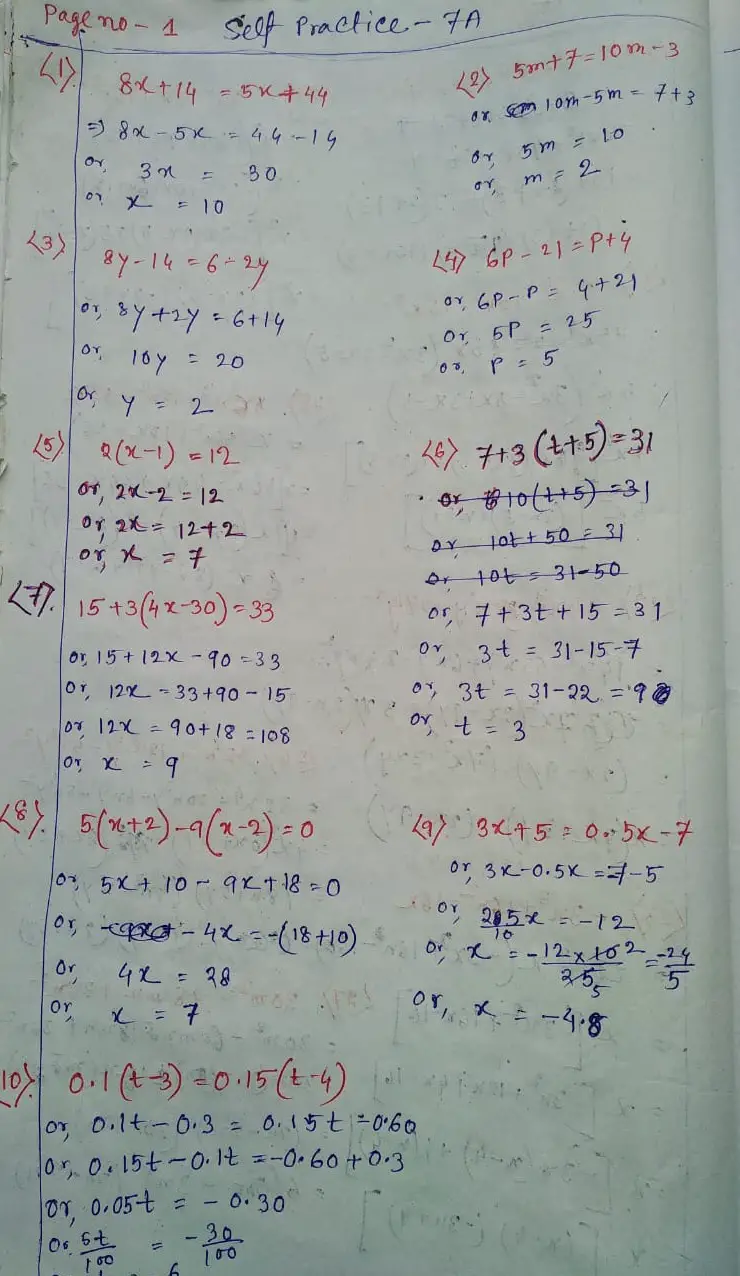 Page no - 1 Self Practice - 7A
<1> 8x+14 = 5x+44
=> 8x-5x = 44-14
or, 3x = 30
or x = 10
<2> 5m+7=10m-3
or 10m-5m = 7+3
or, 5m = 10
or, m = 2
<3> 8y-14 = 6-2y
or, 8y+2y = 6+14
or, 10y = 20
or, y = 2
<4> 6P-21=P+4
or, 6P-P = 4+21
or, 5P = 25
or, P = 5
<5> 2(x-1) = 12
or, 2x-2 = 12
or, 2x = 12+2
or, x = 7
<6> 7+3(t+5)=31
or, 10(t+5) =31
or 10t+50 = 31
or 10t = 31-50
or, 7+3t+15 = 31
or, 3t = 31-15-7
or, 3t = 31-22 = 9
or, t = 3
<7>. 15+3(4x-30)=33
or, 15+12x-90=33
or, 12x =33+90-15
or, 12x = 90+18 =108
or, x = 9
<8>. 5(x+2)-9(x-2)=0
or, 5x+10-9x+18=0
or, -4x = -(18+10)
or, 4x = 28
or, x = 7
<9> 3x+5 = 0.5x-7
or, 3x-0.5x =-7-5
or, 25x/10 = -12
or, x = -12×10 2/25 5 = -24/5
or, x = -4.8
10>. 0.1(t-3) =0.15(t-4)
or, 0.1t-0.3 = 0.15t-0.60
or, 0.15t-0.1t =-0.60+0.3
or, 0.05t = -0.30
or 5t/100 = -30/100
6